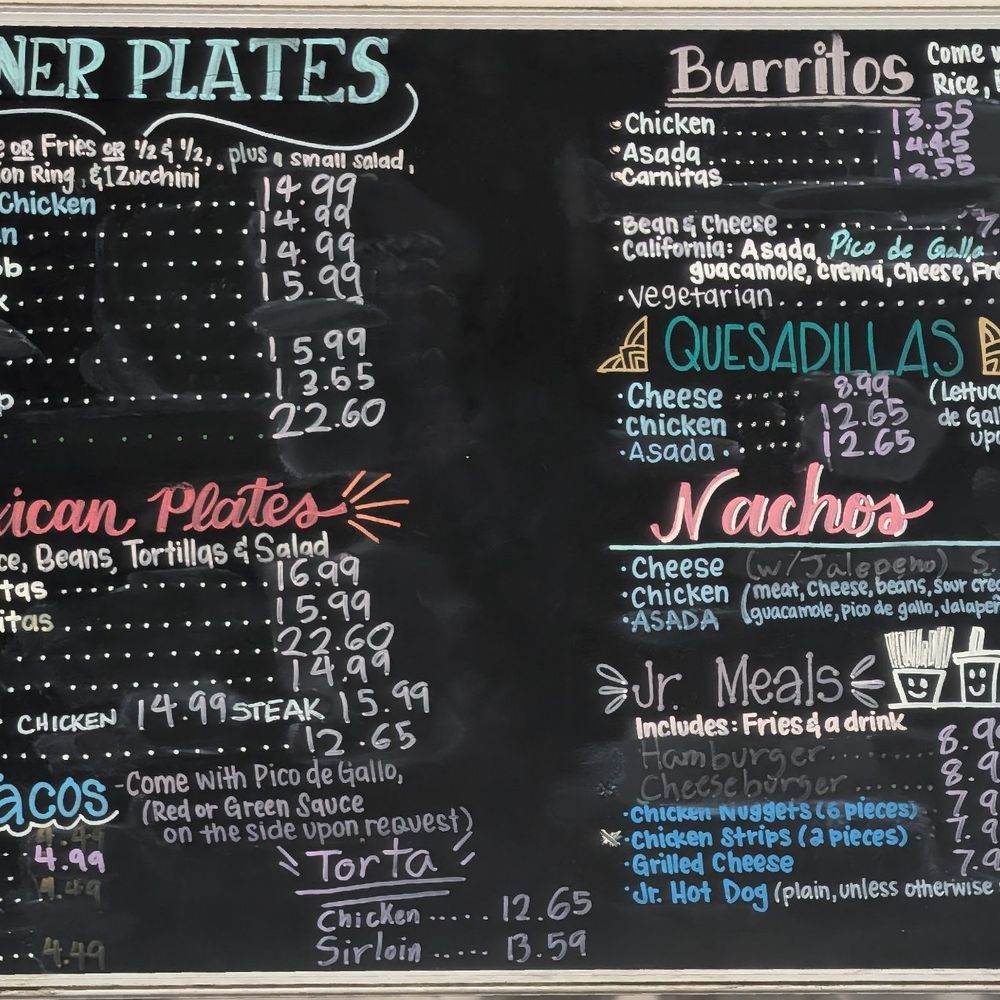 NER PLATES
e OR Fries OR 1/2 & 1/2, plus a small salad,
ion Ring, & 1 Zucchini
Chicken .......... 14.99
n .......... 14.99
b .......... 14.99
k .......... 15.99
.......... 15.99
p .......... 13.65
.......... 22.60
xican Plates
ce, Beans, Tortillas & Salad
tas .......... 16.99
itas .......... 15.99
.......... 22.60
.......... 14.99
CHICKEN 14.99 STEAK 15.99
.......... 12.65
acos - Come with Pico de Gallo,
(Red or Green Sauce
on the side upon request)
4.49
4.99
4.49
4.49
Torta
Chicken ..... 12.65
Sirloin ..... 13.59
Burritos Come w
Rice,
• Chicken .......... 13.55
• Asada .......... 14.45
• Carnitas .......... 13.55
• Bean & Cheese .......... 7.
• California: Asada, Pico de Gallo
guacamole, crema, cheese, Fr
• Vegetarian ..........
QUESADILLAS
• Cheese ..... 8.99 (Lettuc
• Chicken ..... 12.65 de Gal
• Asada ..... 12.65 upo
Nachos
• Cheese (w/Jalepeno) S.
• Chicken (meat, cheese, beans, sour cre
• ASADA guacamole, pico de gallo, Jalapeñ
Jr. Meals
Includes: Fries & a drink
Hamburger .......... 8.9
Cheeseburger .......... 8.9
• Chicken Nuggets (6 pieces) 7.9
• Chicken Strips (2 pieces) 7.9
• Grilled Cheese 7.9
• Jr. Hot Dog (plain, unless otherwise